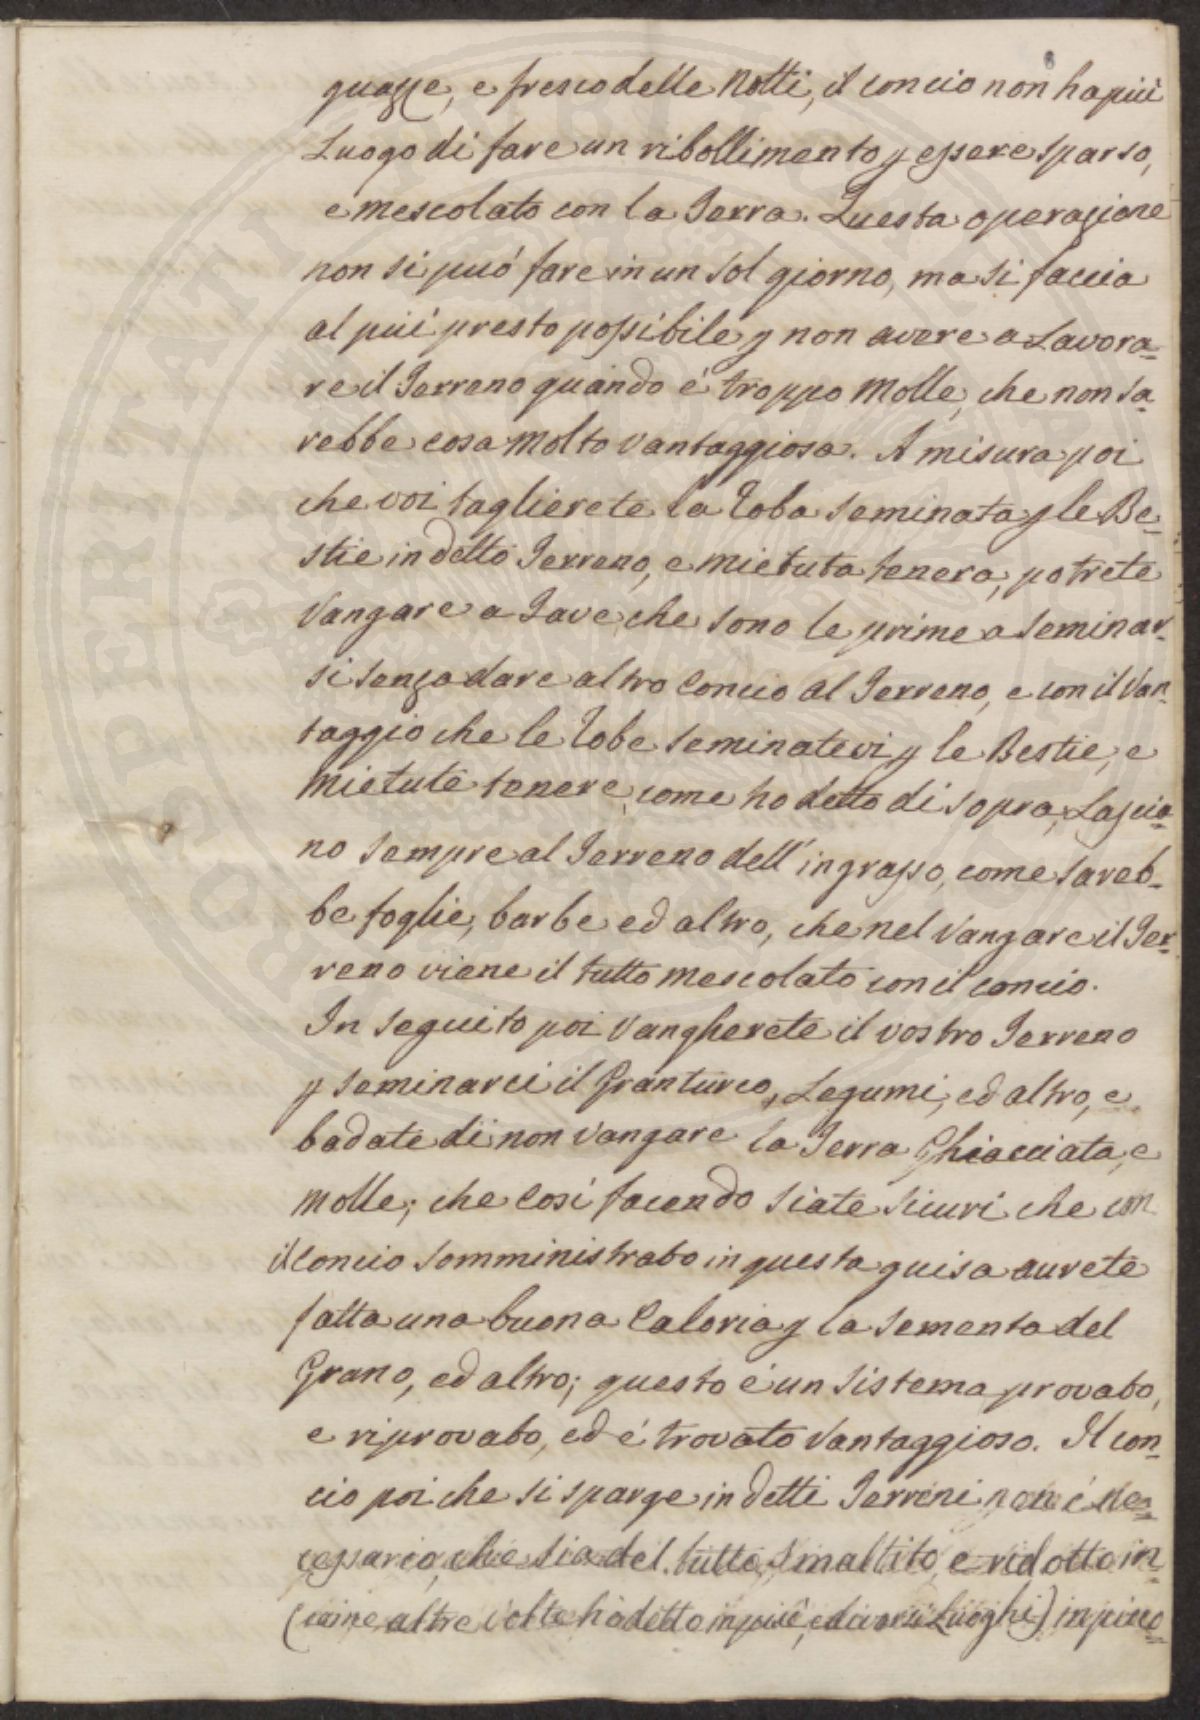 guazze, e fresco delle Notti, il concio non ha più
Luogo di fare un ribollimento p essere sparso,
e mescolato con la Terra. Questa operazione
non si può fare in un sol giorno, ma si faccia
al più presto possibile p non avere a Lavora=
re il Terreno quando é troppo Molle, che non sa=
rebbe cosa Molto Vantaggiosa. A misura poi
che voi taglierete la Roba seminata p le Be=
stie in detto Terreno, e Mietuta tenera, potrete
Vangare a Fave che sono le prime a seminar=
si senza dare altro Concio al Terreno, e con il Van=
taggio che le Robe seminatevi p le Bestie, e
Mietute tenere, come ho detto di sopra, Lascia=
no sempre al Terreno dell' ingrasso, come sareb=
be foglie, barbe ed altro, che nel Vangare il Ter=
reno viene il tutto Mescolato con il concio.
In seguito poi Vangherete il vostro Terreno
p seminarci il Granturco, Legumi, ed altro, e
badate di non Vangare la Terra Ghiacciata, e
Molle; che Così facendo siate sicuri che con
il Concio somministrato in questa guisa avrete
fatta una buona Caloria p la Sementa del
Grano, ed altro; questo é un Sistema provato,
e riprovato, ed é trovato Vantaggioso. Il con=
cio poi che si sparge in detti Terreni non é Ne=
cessario, che sia del tutto Smaltito, e ridotto in=
(come altre Volte hò detto in più, e diversi Luoghi) in picco=
PROSPERITATI